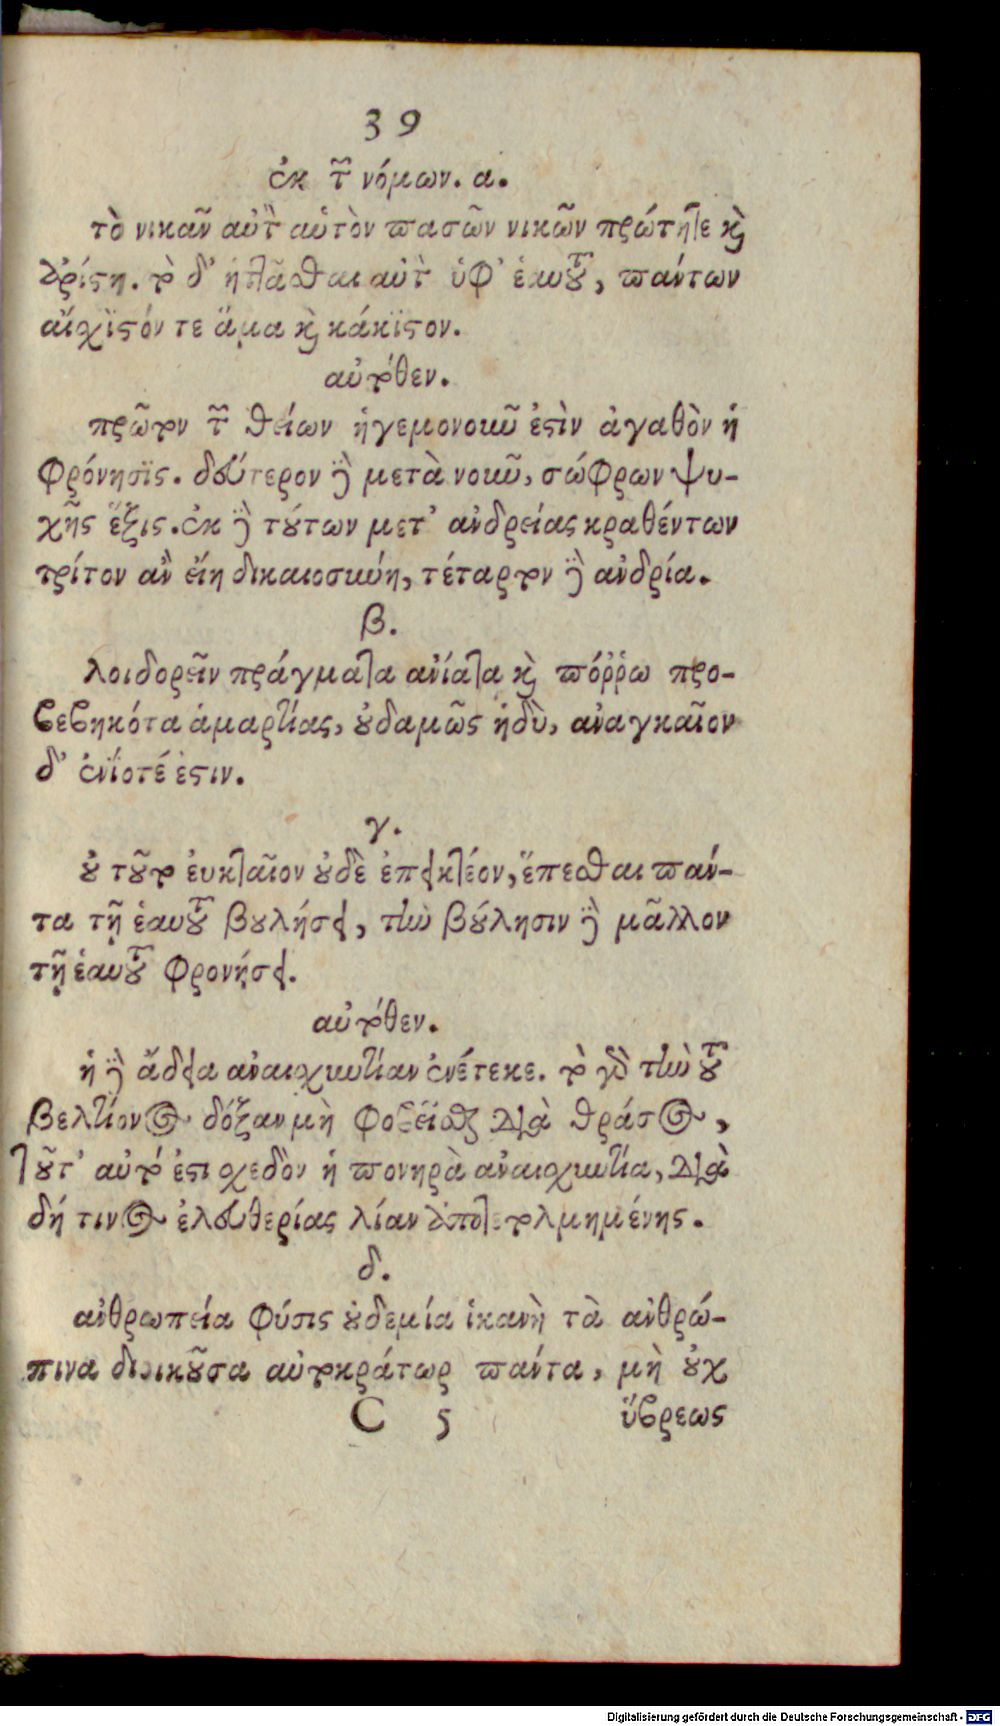 39
ἐκ τῶν νόμων. α.
τὸ νικᾶν αὐτὸν αὑτὸν πασῶν νικῶν πρώτη τε καὶ
ἀρίστη. τὸ δ' ἡττᾶσθαι αὐτὸν ὑφ' ἑαυτοῦ, πάντων
αἴσχιστόν τε ἅμα καὶ κάκιστον.
αὐτόθεν.
πρῶτον τῶν θείων ἡγεμονοῦν ἐστὶν ἀγαθὸν ἡ
φρόνησις. δεύτερον δὲ μετὰ νοῦ, σώφρων ψυ-
χῆς ἕξις. ἐκ δὲ τούτων μετ' ἀνδρείας κραθέντων
τρίτον ἂν εἴη δικαιοσύνη, τέταρτον δὲ ἀνδρία.
β.
λοιδορεῖν πράγματα ἀνίατα καὶ πόῤῥω προ-
βεβηκότα ἁμαρτίας, οὐδαμῶς ἡδὺ, ἀναγκαῖον
δ' ἐνίοτέ ἐστιν.
γ.
οὐ τοῦτο εὐκταῖον οὐδὲ ἐπεικτέον, ἕπεσθαι πάν-
τα τῇ ἑαυτοῦ βουλήσει, τὴν βούλησιν δὲ μᾶλλον
τῇ ἑαυτοῦ φρονήσει.
αὐτόθεν.
ἡ δὲ ἄδεια ἀναισχυντίαν ἐνέτεκε. τὸ γὰρ τὴν τοῦ
βελτίονος δόξαν μὴ φοβεῖσθαι διὰ θράσος,
τοῦτ' αὐτό ἐστι σχεδὸν ἡ πονηρὰ ἀναισχυντία, διὰ
δή τινος ἐλευθερίας λίαν ἀποτετολμημένης.
δ.
ἀνθρωπεία φύσις οὐδεμία ἱκανὴ τὰ ἀνθρώ-
πινα διοικοῦσα αὐτοκράτωρ πάντα, μὴ οὐχ
C 5 ὕβρεως
Digitalisierung gefördert durch die Deutsche Forschungsgemeinschaft - DFG